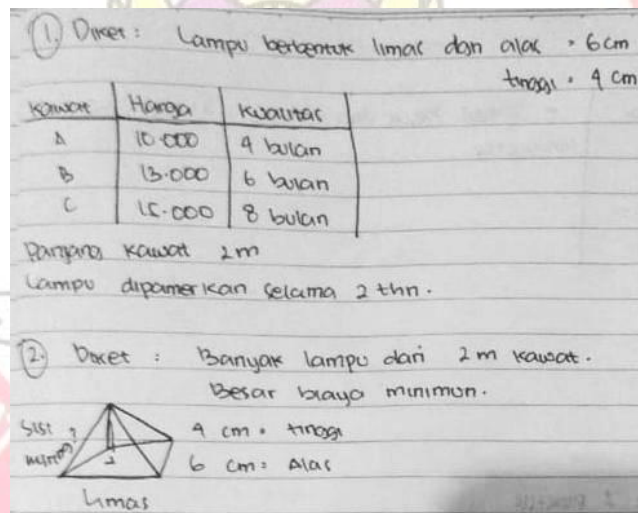 1. Diket : Lampu berbentuk limas dgn alas = 6 cm
tinggi = 4 cm
Kawat Harga Kualitas
A 10.000 4 bulan
B 13.000 6 bulan
C 15.000 8 bulan
Panjang kawat 2m
Lampu dipamerkan selama 2 thn.
2. Diket : Banyak lampu dari 2m kawat.
Besar biaya minimun.
Sisi ? 4 cm = tinggi
miring 6 cm = Alas
Limas